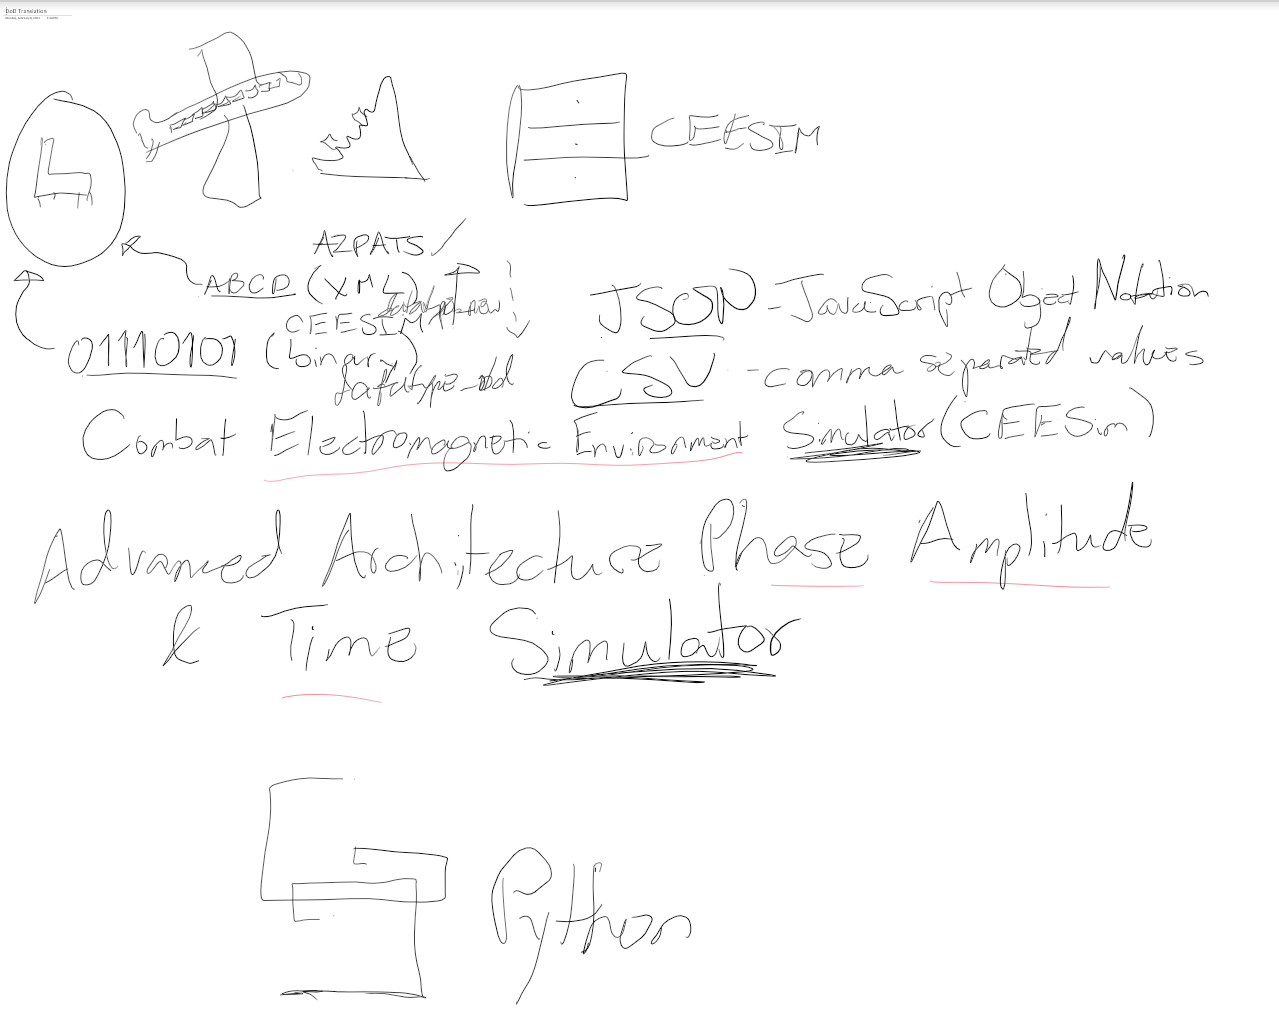 DoD Translation
CEESIM
AZPATS ✓
ABCD (XML)
CEESIM
01110101 (binary)
datatype_old
JSON - JavaScript Object Notation
CSV - comma separated values
Combat Electromagnetic Environment Simulator (CEESim)
Advanced Architecture Phase Amplitude
& Time Simulator
Python